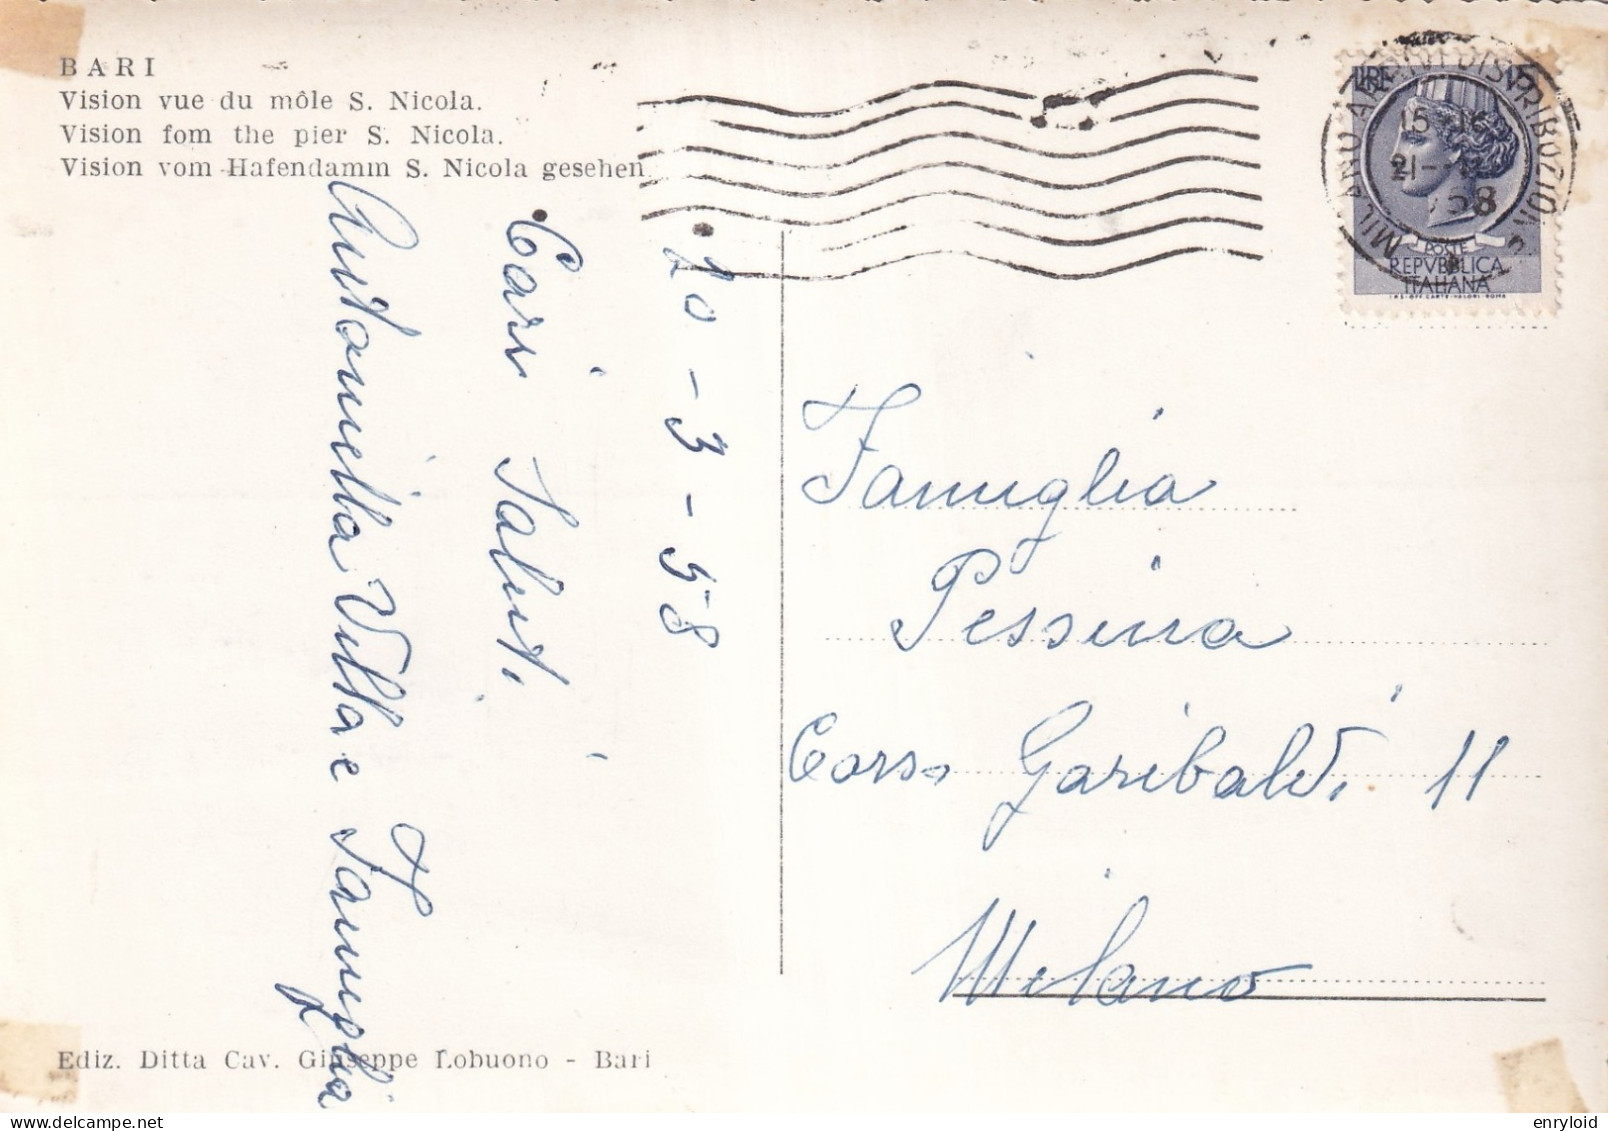 BARI
Vision vue du môle S. Nicola.
Vision fom the pier S. Nicola.
Vision vom Hafendamm S. Nicola gesehen
20-3-58
Cari Saluti
Antonella Villa e Famiglia
Famiglia
Pessina
Corso Garibaldi 11
Milano
LIRE
POSTE
REPVBBLICA
ITALIANA
I.P.S.-OFF. CARTE-VALORI-ROMA
MILANO ARRIVI DISTRIBUZIONE
15-16
58
Ediz. Ditta Cav. Giuseppe Lobuono - Bari
enryloid